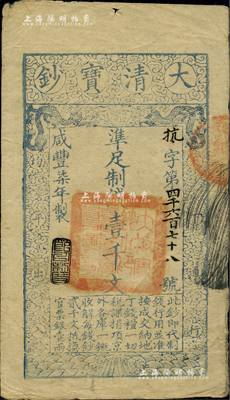 上海陽明拍賣
大清寶鈔
抗字第四千六百七十八號
準足制錢壹千文
咸豐柒年製
此鈔即代制
錢行用並准
按成交納地
丁錢糧一切
稅課捐項京
外各庫一概
收解每錢鈔
貳千文抵換
官票銀壹兩
天
平
出
行
上海陽明拍賣